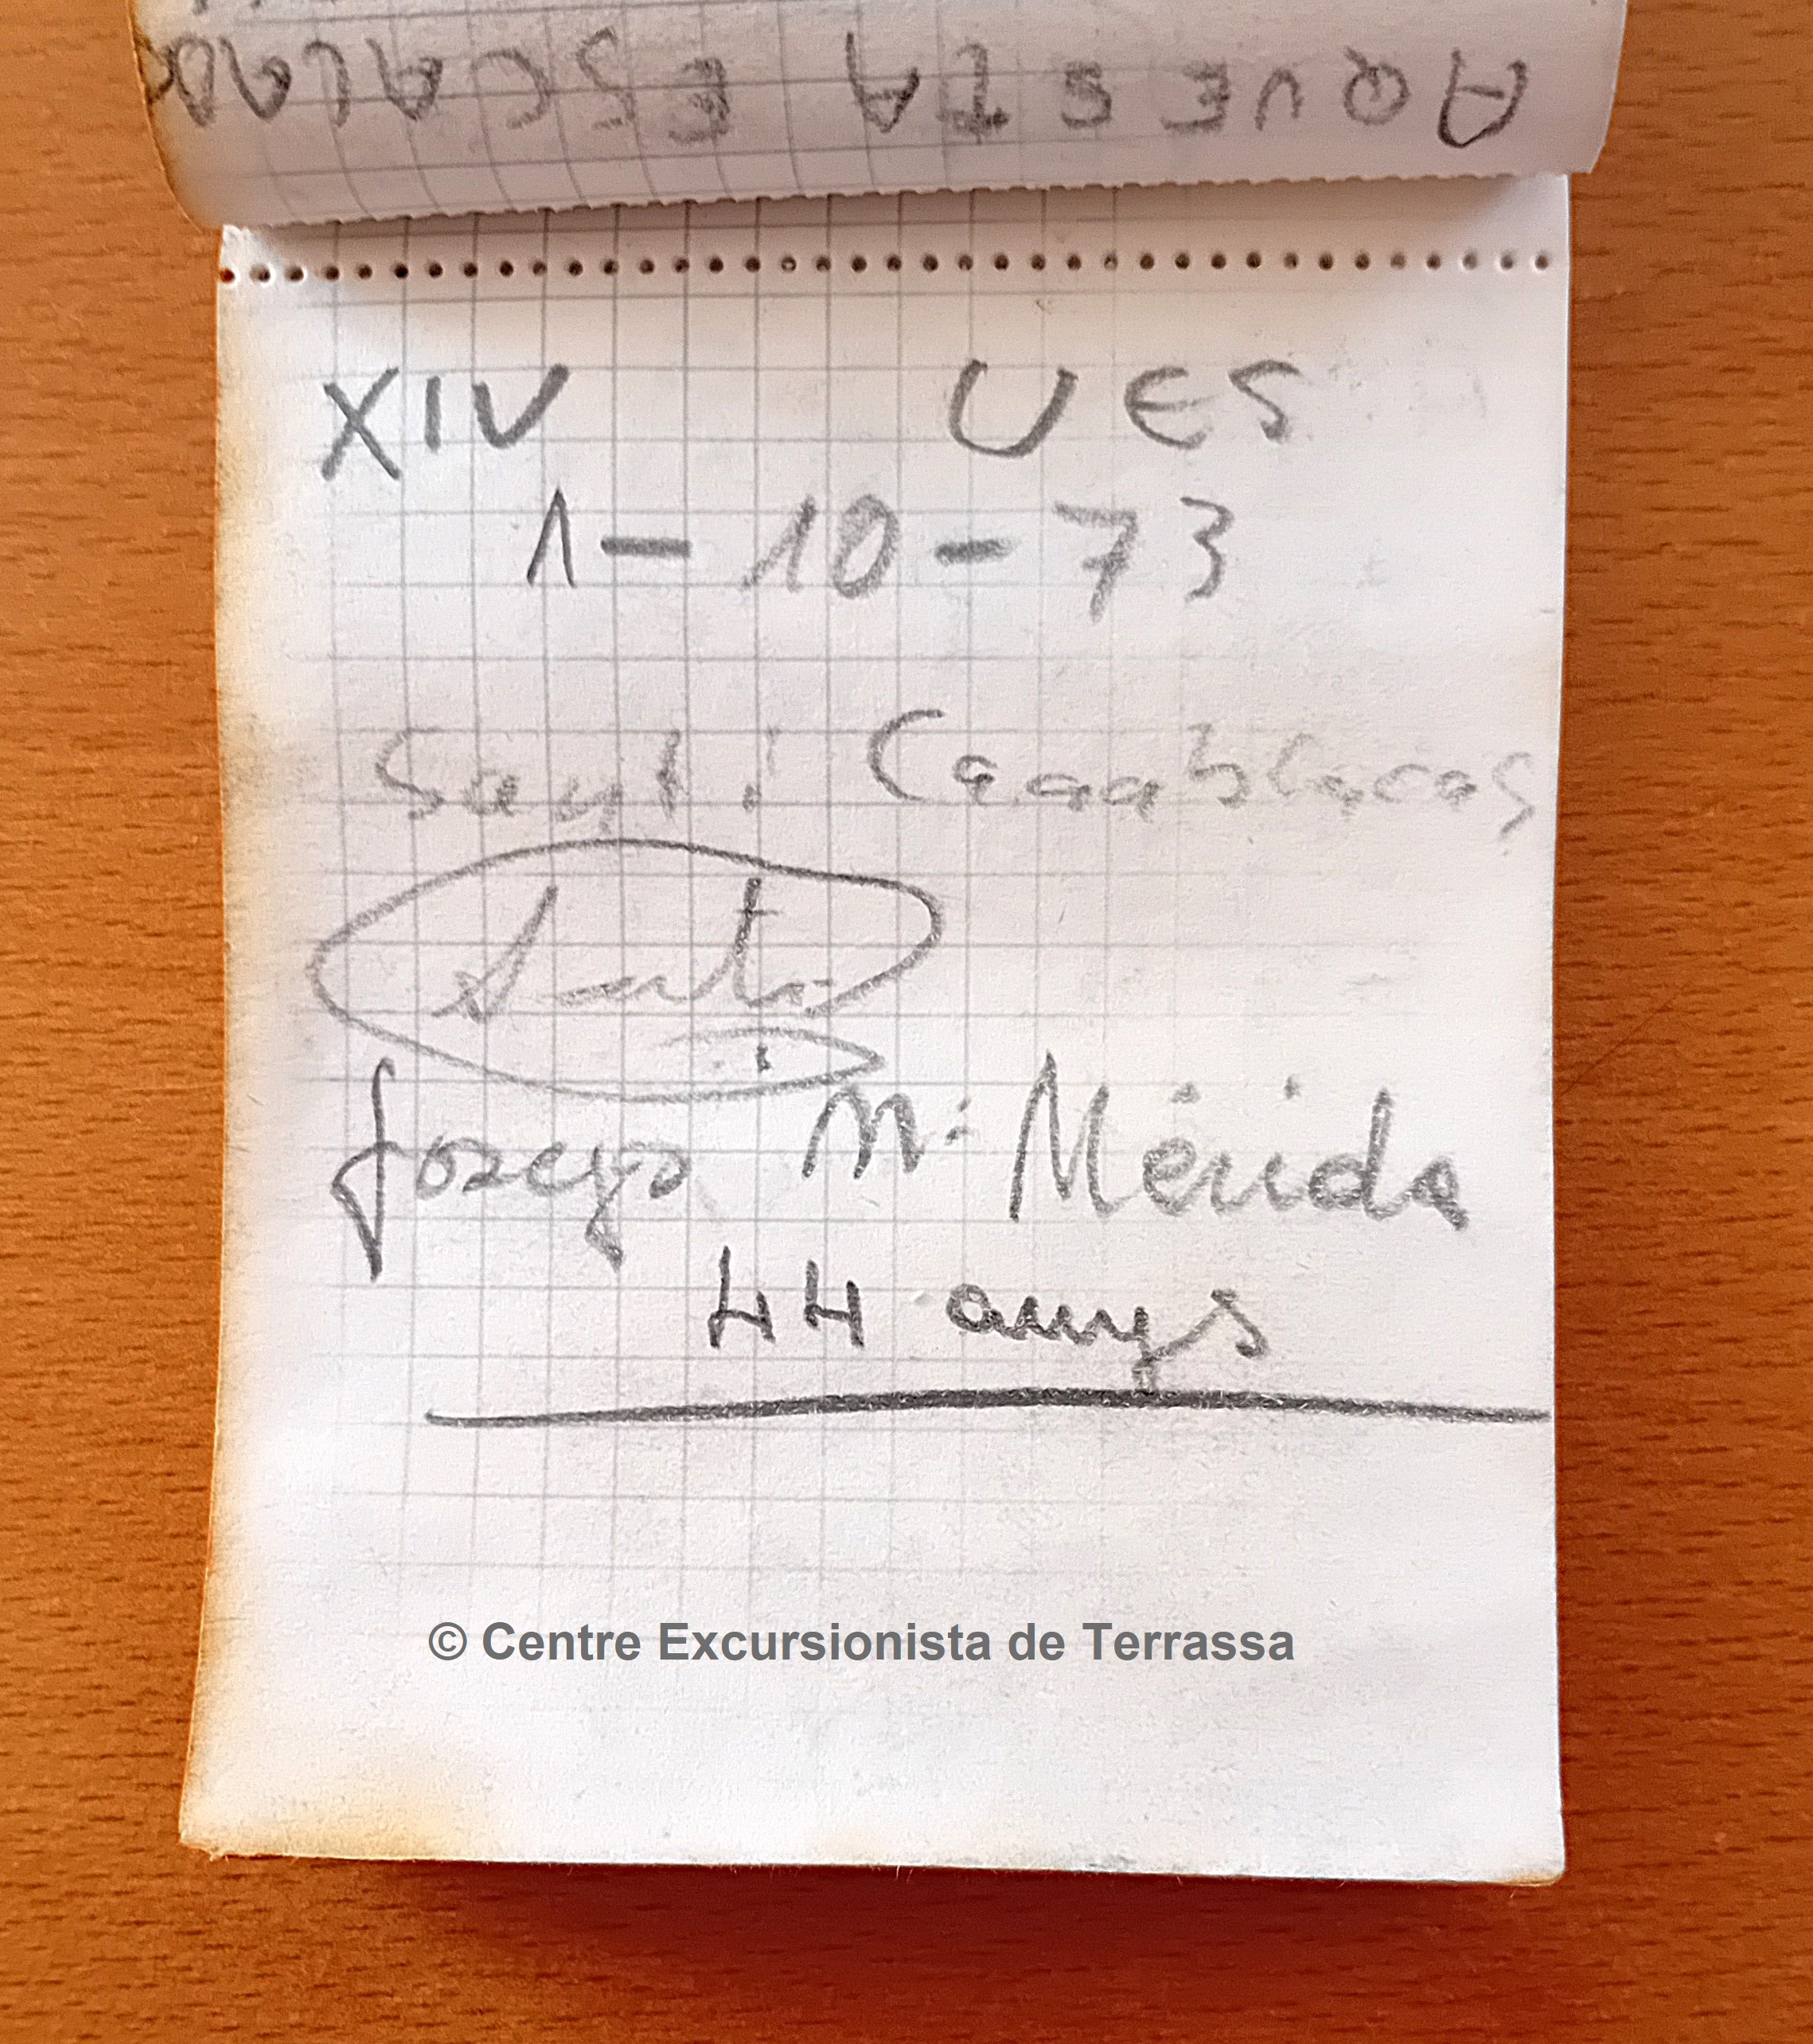 AQUESTA ESCALADA
XIV UES
1-10-73
Santi Casablancas
Santi
Josep Mª Mérida
44 anys
© Centre Excursionista de Terrassa